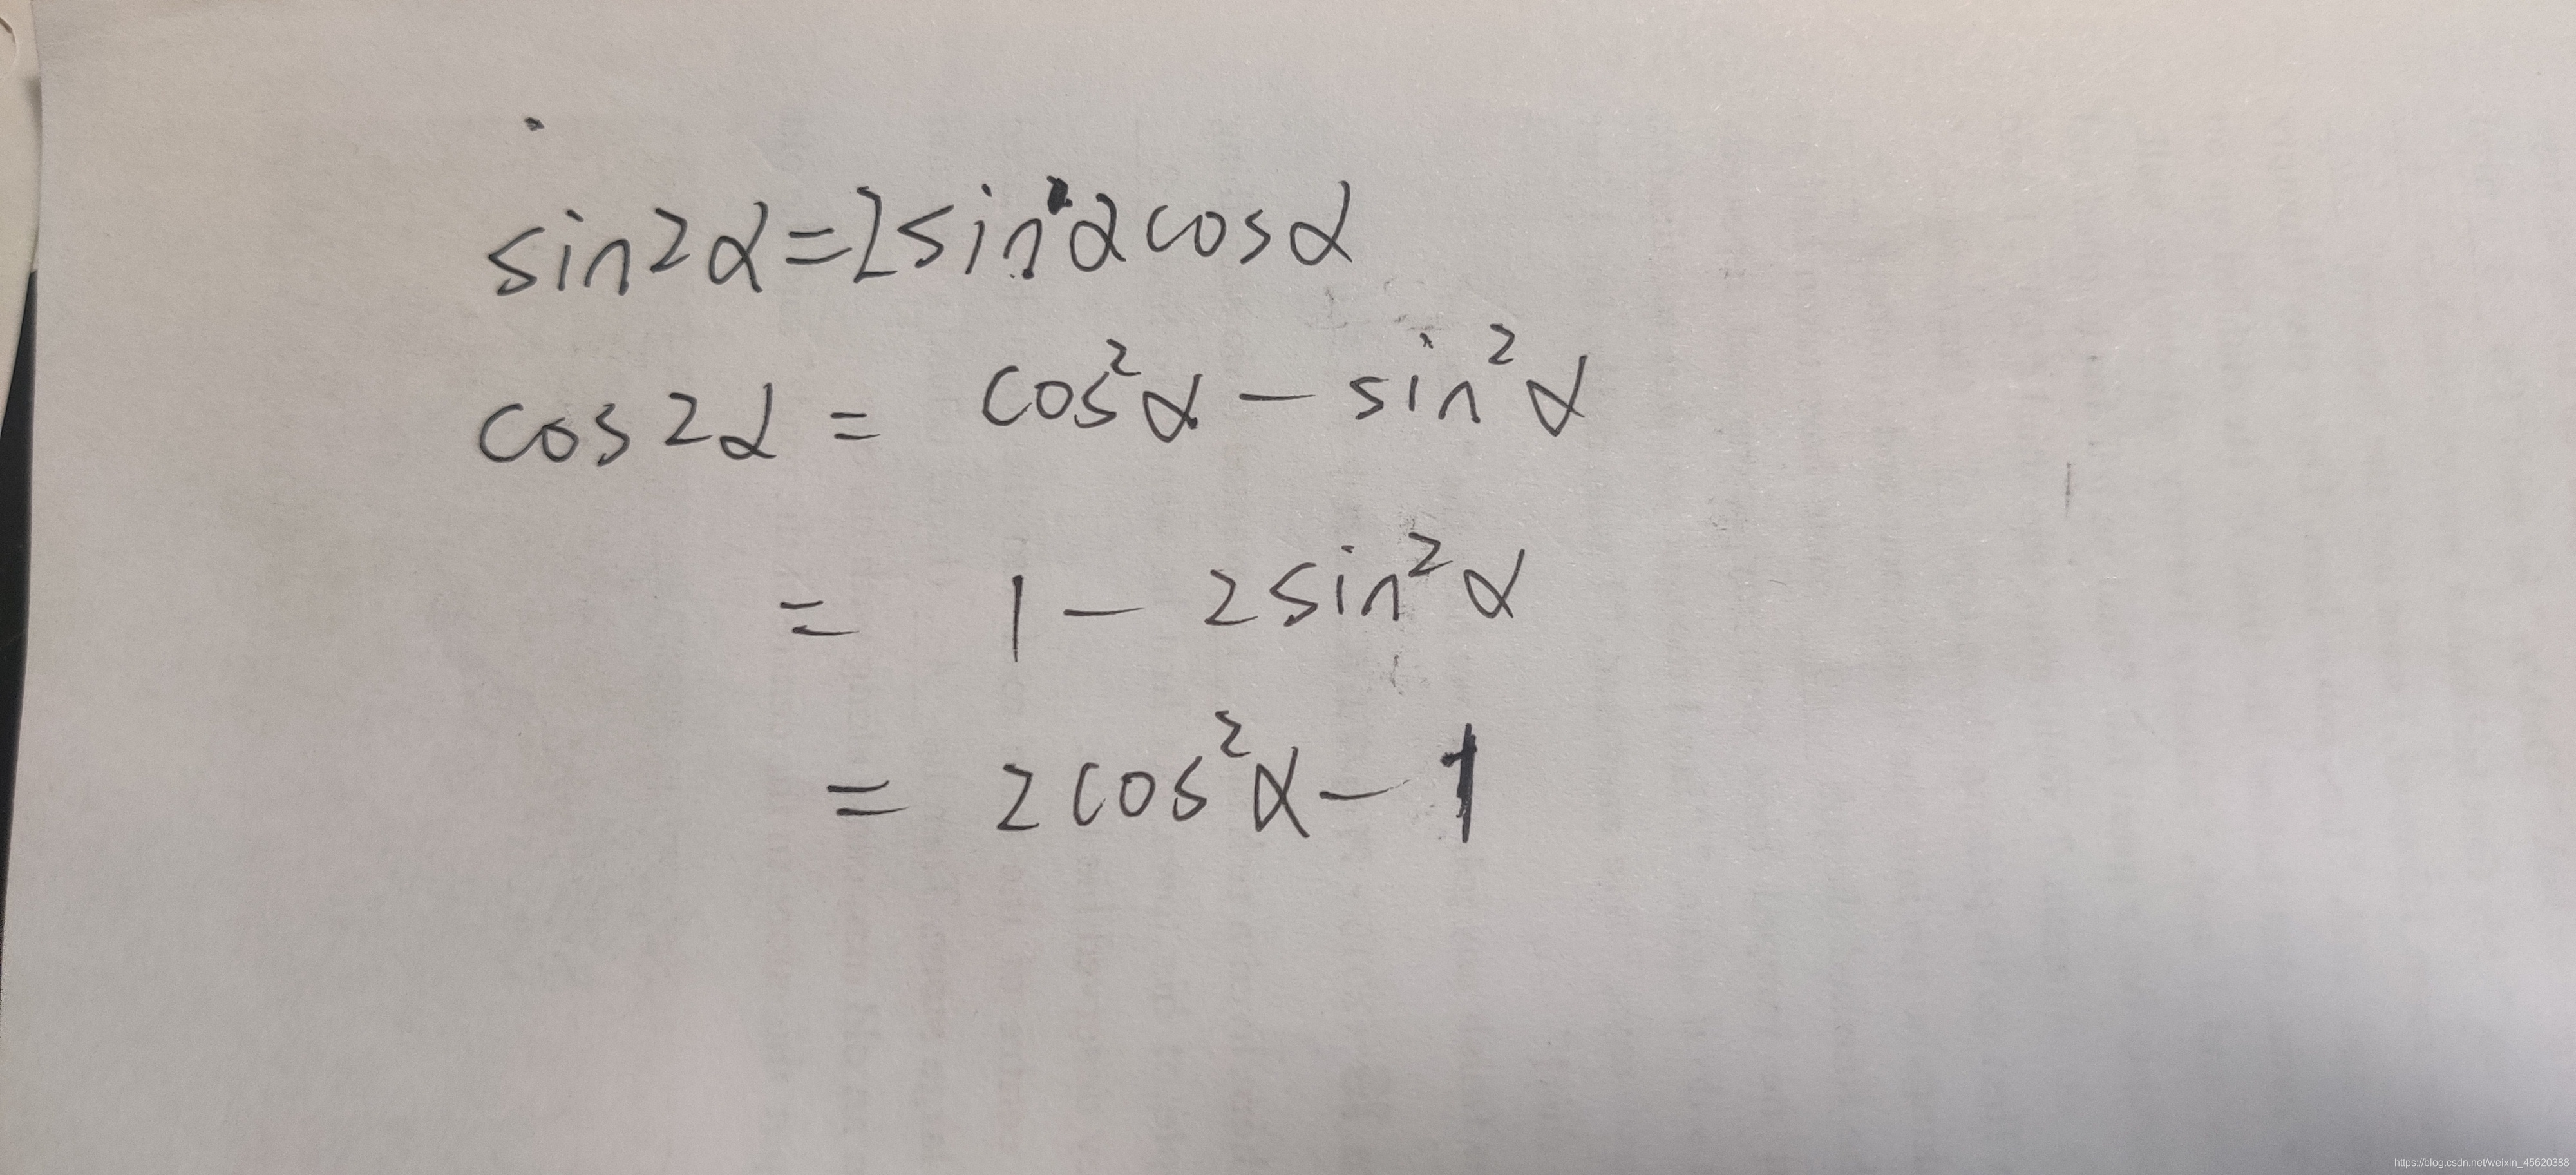 sin2α=2sinαcosα
cos2α = cos²α − sin²α
= 1 − 2sin²α
= 2cos²α − 1
https://blog.csdn.net/weixin_45620388